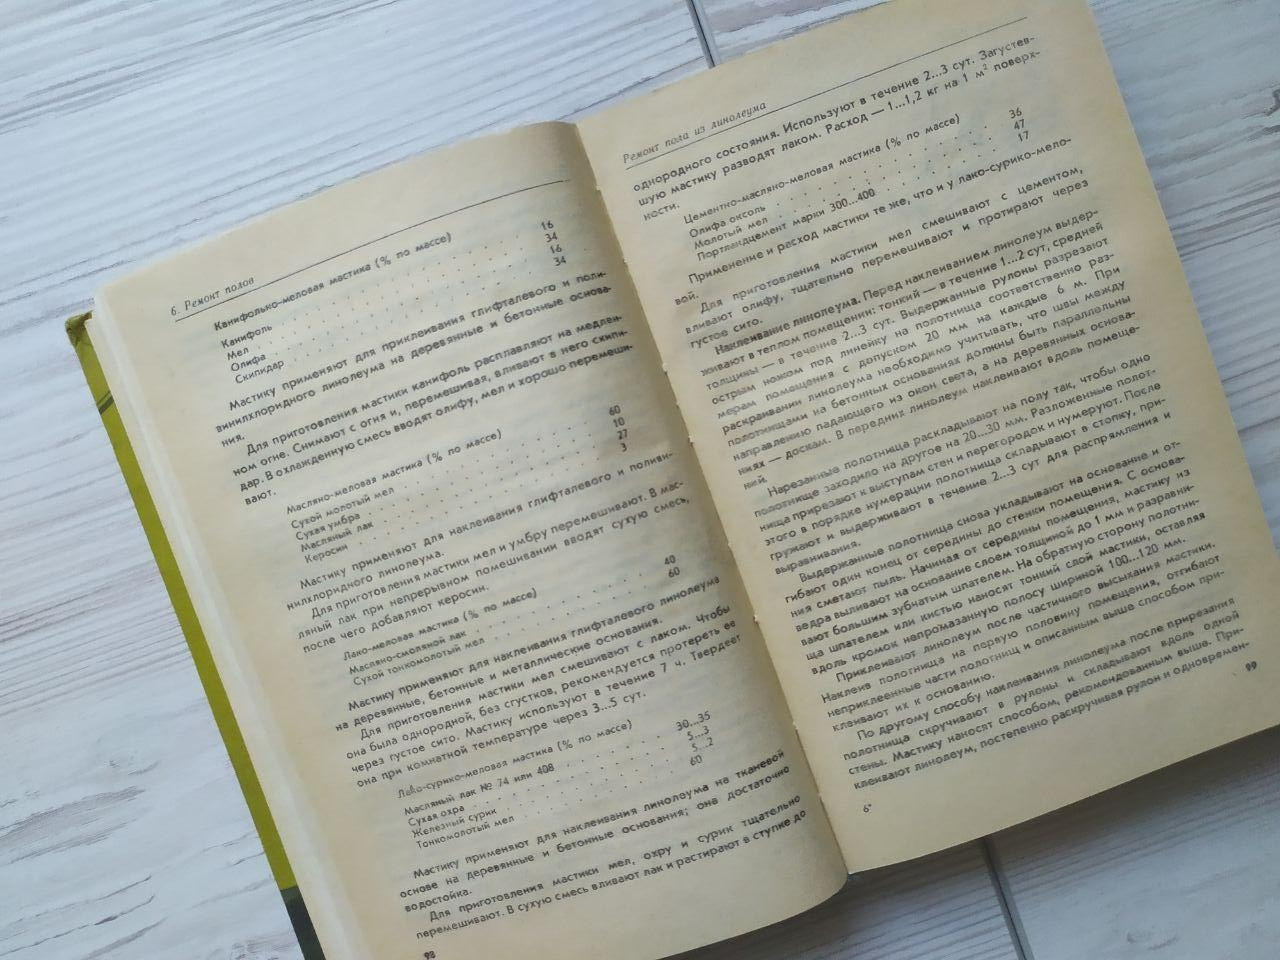 6. Ремонт полов
Канифольно-меловая мастика (% по массе)
Канифоль . . . . . . . . . . 16
Мел . . . . . . . . . . 34
Олифа . . . . . . . . . . 16
Скипидар . . . . . . . . . . 34
Мастику применяют для приклеивания глифталевого и поли-
винилхлоридного линолеума на деревянные и бетонные основа-
ния.
Для приготовления мастики канифоль расплавляют на медлен-
ном огне. Снимают с огня и, перемешивая, вливают в него скипи-
дар. В охлажденную смесь вводят олифу, мел и хорошо перемеши-
вают.
Масляно-меловая мастика (% по массе)
Сухой молотый мел . . . . . . . . . . 60
Сухая умбра . . . . . . . . . . 10
Масляный лак . . . . . . . . . . 27
Керосин . . . . . . . . . . 3
Мастику применяют для наклеивания глифталевого и поливи-
нилхлоридного линолеума.
Для приготовления мастики мел и умбру перемешивают. В мас-
ляный лак при непрерывном помешивании вводят сухую смесь,
после чего добавляют керосин.
Лако-меловая мастика (% по массе)
Масляно-смоляной лак . . . . . . . . . . 40
Сухой тонкомолотый мел . . . . . . . . . . 60
Мастику применяют для наклеивания глифталевого линолеума
на деревянные, бетонные и металлические основания.
Для приготовления мастики мел смешивают с лаком. Чтобы
она была однородной, без сгустков, рекомендуется протереть ее
через густое сито. Мастику используют в течение 7 ч. Твердеет
она при комнатной температуре через 3...5 сут.
Лако-сурико-меловая мастика (% по массе)
Масляный лак № 74 или 408 . . . . . . 30...35
Сухая охра . . . . . . . . . . 5...3
Железный сурик . . . . . . . . . . 5...2
Тонкомолотый мел . . . . . . . . . . 60
Мастику применяют для наклеивания линолеума не тканевой
основе на деревянные и бетонные основания; она достаточно
водостойка.
Для приготовления мастики мел, охру и сурик тщательно
перемешивают. В сухую смесь вливают лак и растирают в ступке до
98
Ремонт пола из линолеума
однородного состояния. Используют в течение 2...3 сут. Загустев-
шую мастику разводят лаком. Расход — 1...1,2 кг на 1 м² поверх-
ности.
Цементно-масляно-меловая мастика (% по массе)
Олифа оксоль . . . . . . . . . . 36
Молотый мел . . . . . . . . . . 47
Портландцемент марки 300...400 . . . . . . 17
Применение и расход мастики те же, что и у лако-сурико-мело-
вой.
Для приготовления мастики мел смешивают с цементом,
вливают олифу, тщательно перемешивают и протирают через
густое сито.
Наклеивание линолеума. Перед наклеиванием линолеум выдер-
живают в теплом помещении: тонкий — в течение 1...2 сут, средней
толщины — в течение 2...3 сут. Выдержанные рулоны разрезают
острым ножом под линейку на полотнища соответственно раз-
мерам помещения с допуском 20 мм на каждые 6 м. При
раскраивании линолеума необходимо учитывать, что швы между
полотнищами на бетонных основаниях должны быть параллельны
направлению падающего из окон света, а на деревянных основа-
ниях — доскам. В передних линолеум наклеивают вдоль помеще-
ний.
Нарезанные полотнища раскладывают на полу так, чтобы одно
полотнище заходило на другое на 20...30 мм. Разложенные полот-
нища прирезают к выступам стен и перегородок и нумеруют. После
этого в порядке нумерации полотнища складывают в стопку, при-
гружают и выдерживают в течение 2...3 сут для распрямления и
выравнивания.
Выдержанные полотнища снова укладывают на основание и от-
гибают один конец от середины до стенки помещения. С основа-
ния сметают пыль. Начиная от середины помещения, мастику из
ведра выливают на основание слоем толщиной до 1 мм и разравни-
вают большим зубчатым шпателем. На обратную сторону полотни-
ща шпателем или кистью наносят тонкий слой мастики, оставляя
вдоль кромок непромазанную полосу шириной 100...120 мм.
Приклеивают линолеум после частичного высыхания мастики.
Наклеив полотнища на первую половину помещения, отгибают
неприклеенные части полотнищ и описанным выше способом при-
клеивают их к основанию.
По другому способу наклеивания линолеума после прирезания
полотнища скручивают в рулоны и складывают вдоль одной
стены. Мастику наносят способом, рекомендованным выше. При-
клеивают линолеум, постепенно раскручивая рулон и одновремен-
6* 99